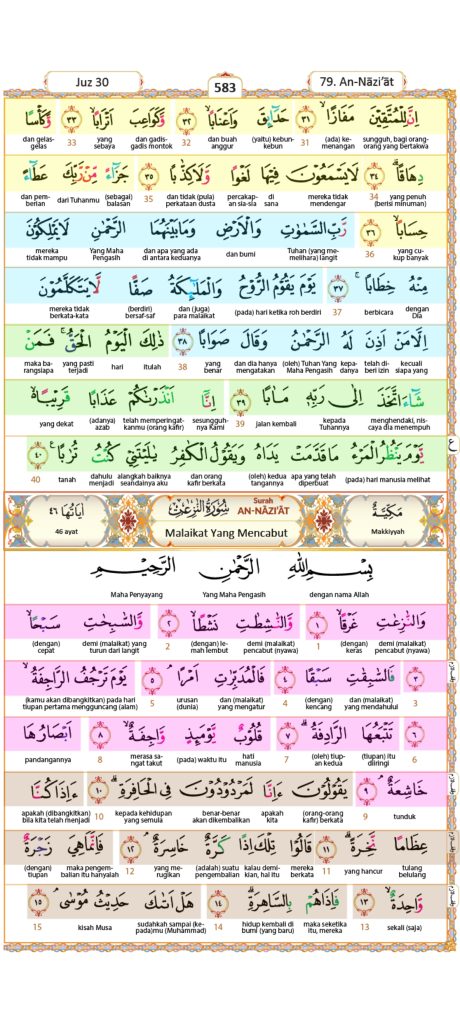 Juz 30
583
79. An-Nāzi'āt
اِنَّ لِلْمُتَّقِيْنَ مَفَازًاۙ ٣١ حَدَاۤىِٕقَ وَاَعْنَابًاۙ ٣٢ وَّكَوَاعِبَ اَتْرَابًاۙ ٣٣ وَّكَأْسًا
sungguh, bagi orang-orang yang bertakwa (ada) ke-menangan 31 (yaitu) kebun-kebun dan buah anggur 32 dan gadis-gadis montok yang sebaya 33 dan gelas-gelas
دِهَاقًاۗ ٣٤ لَا يَسْمَعُوْنَ فِيْهَا لَغْوًا وَّلَا كِذّٰبًا ٣٥ جَزَاۤءً مِّنْ رَّبِّكَ عَطَاۤءً
yang penuh (berisi minuman) 34 mereka tidak mendengar di sana percakap-an sia-sia dan tidak (pula) perkataan dusta 35 (sebagai) balasan dari Tuhanmu dan pem-berian
حِسَابًاۙ ٣٦ رَّبِّ السَّمٰوٰتِ وَالْاَرْضِ وَمَا بَيْنَهُمَا الرَّحْمٰنِ لَا يَمْلِكُوْنَ
yang cu-kup banyak 36 Tuhan (yang me-melihara) langit dan bumi dan apa yang ada di antara keduanya Yang Maha Pengasih mereka tidak mampu
مِنْهُ خِطَابًاۚ ٣٧ يَوْمَ يَقُوْمُ الرُّوْحُ وَالْمَلٰۤىِٕكَةُ صَفًّاۙ لَّا يَتَكَلَّمُوْنَ
dengan Dia berbicara 37 (pada) hari ketika roh berdiri dan (juga) para malaikat (berdiri) bersaf-saf mereka tidak berkata-kata
اِلَّا مَنْ اَذِنَ لَهُ الرَّحْمٰنُ وَقَالَ صَوَابًا ٣٨ ذٰلِكَ الْيَوْمُ الْحَقُّۚ فَمَنْ
kecuali siapa yang telah di-beri izin kepa-danya (oleh) Tuhan Yang Maha Pengasih dan dia hanya mengatakan yang benar 38 itulah hari yang pasti terjadi maka ba-rangsiapa
شَاۤءَ اتَّخَذَ اِلٰى رَبِّهٖ مَاٰبًا ٣٩ اِنَّآ اَنْذَرْنٰكُمْ عَذَابًا قَرِيْبًا ەۙ
menghendaki, nis-caya dia menempuh kepada Tuhannya jalan kembali 39 sesungguh-nya Kami telah memperingat-kanmu (orang kafir) (adanya) azab yang dekat
يَّوْمَ يَنْظُرُ الْمَرْءُ مَا قَدَّمَتْ يَدَاهُ وَيَقُوْلُ الْكٰفِرُ يٰلَيْتَنِيْ كُنْتُ تُرٰبًا ࣖ ٤٠
(pada) hari manusia melihat apa yang telah diperbuat (oleh) kedua tangannya dan orang kafir berkata alangkah baiknya seandainya aku dahulu menjadi tanah 40
ع
مَكِّيَّةٌ
Makkiyyah
سُوْرَةُ النّٰزِعٰتِ
Surah AN-NĀZI'ĀT
Malaikat Yang Mencabut
اٰيَاتُهَا ٤٦
46 ayat
بِسْمِ اللّٰهِ الرَّحْمٰنِ الرَّحِيْمِ
dengan nama Allah Yang Maha Pengasih Maha Penyayang
وَالنّٰزِعٰتِ غَرْقًاۙ ١ وَّالنّٰشِطٰتِ نَشْطًاۙ ٢ وَّالسّٰبِحٰتِ سَبْحًاۙ
demi (malaikat) pencabut (nyawa) (dengan) keras 1 demi (malaikat) pencabut (nyawa) (dengan) le-mah lembut 2 demi (malaikat) yang turun dari langit (dengan) cepat
٣ فَالسّٰبِقٰتِ سَبْقًاۙ ٤ فَالْمُدَبِّرٰتِ اَمْرًاۘ ٥ يَوْمَ تَرْجُفُ الرَّاجِفَةُۙ
3 dan (malaikat) yang mendahului (dengan) kencang 4 dan (malaikat) yang mengatur urusan (dunia) 5 (kamu akan dibangkitkan) pada hari tiupan pertama mengguncang (alam)
٦ تَتْبَعُهَا الرَّادِفَةُۗ ٧ قُلُوْبٌ يَّوْمَىِٕذٍ وَّاجِفَةٌۙ ٨ اَبْصَارُهَا
6 (tiupan) itu diiringi (oleh) tiup-an kedua 7 hati manusia (pada) waktu itu merasa sa-ngat takut 8 pandangannya
خَاشِعَةٌۘ ٩ يَقُوْلُوْنَ ءَاِنَّا لَمَرْدُوْدُوْنَ فِى الْحَافِرَةِۗ ١٠ ءَاِذَا كُنَّا
tunduk 9 (orang-orang kafir) berkata apakah kita benar-benar akan dikembalikan kepada kehidupan yang semula 10 apakah (dibangkitkan) bila kita telah menjadi
عِظَامًا نَّخِرَةًۗ ١١ قَالُوْا تِلْكَ اِذًا كَرَّةٌ خَاسِرَةٌۘ ١٢ فَاِنَّمَا هِيَ زَجْرَةٌ
tulang belulang yang hancur 11 mereka berkata kalau demi-kian, hal itu (adalah) suatu pengembalian yang me-rugikan 12 maka pengem-balian itu hanyalah (dengan) tiupan
وَّاحِدَةٌۙ ١٣ فَاِذَا هُمْ بِالسَّاهِرَةِۗ ١٤ هَلْ اَتٰىكَ حَدِيْثُ مُوْسٰىۘ ١٥
sekali (saja) 13 maka seketika itu, mereka hidup kembali di bumi (yang baru) 14 sudahkah sampai (ke-pada)mu (Muhammad) kisah Musa 15